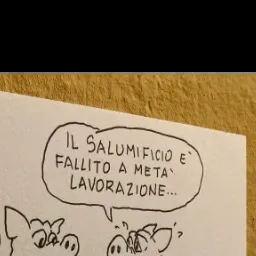 IL SALUMIFICIO E`
FALLITO A META`
LAVORAZIONE...